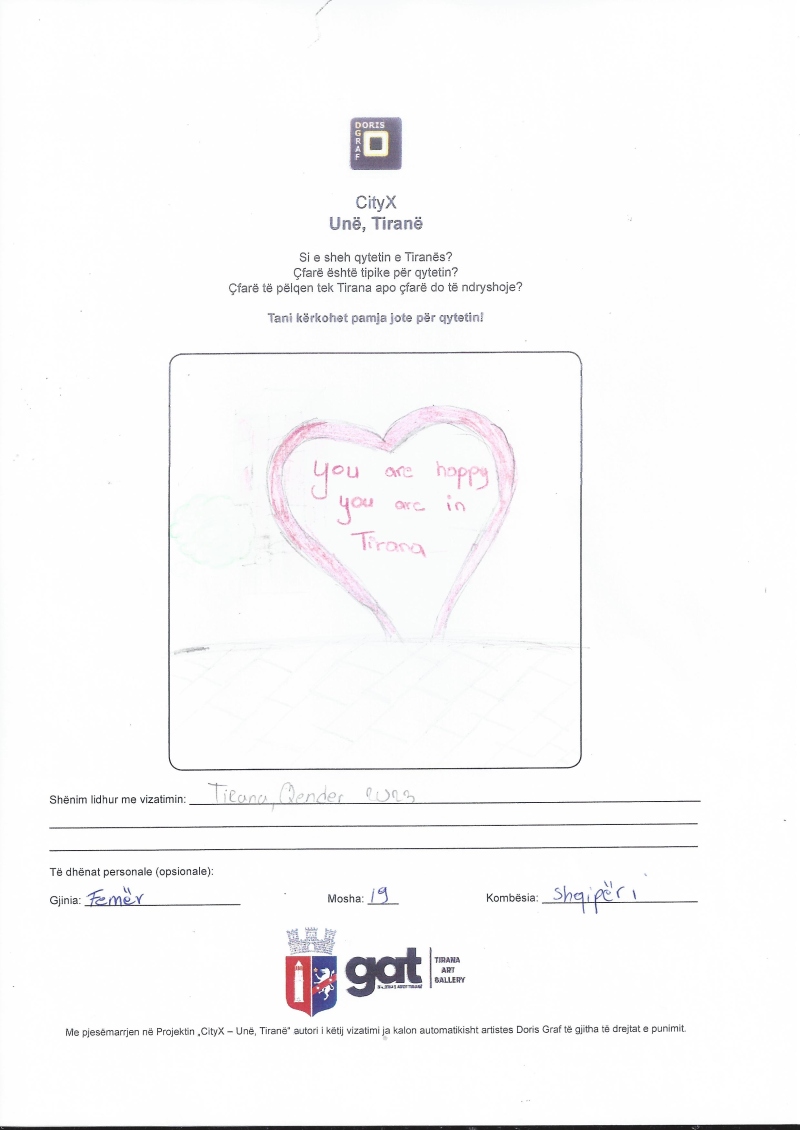 DORIS
GRAF
CityX
Unë, Tiranë
Si e sheh qytetin e Tiranës?
Çfarë është tipike për qytetin?
Çfarë të pëlqen tek Tirana apo çfarë do të ndryshoje?
Tani kërkohet pamja jote për qytetin!
you are happy
you are in
Tirana
Shënim lidhur me vizatimin: Tirana, Qender
Të dhënat personale (opsionale):
Gjinia: Femër Mosha: 19 Kombësia: Shqipëri
gat TIRANA
ART
GALLERY
Me pjesëmarrjen në Projektin „CityX – Unë, Tiranë" autori i këtij vizatimi ja kalon automatikisht artistes Doris Graf të gjitha të drejtat e punimit.